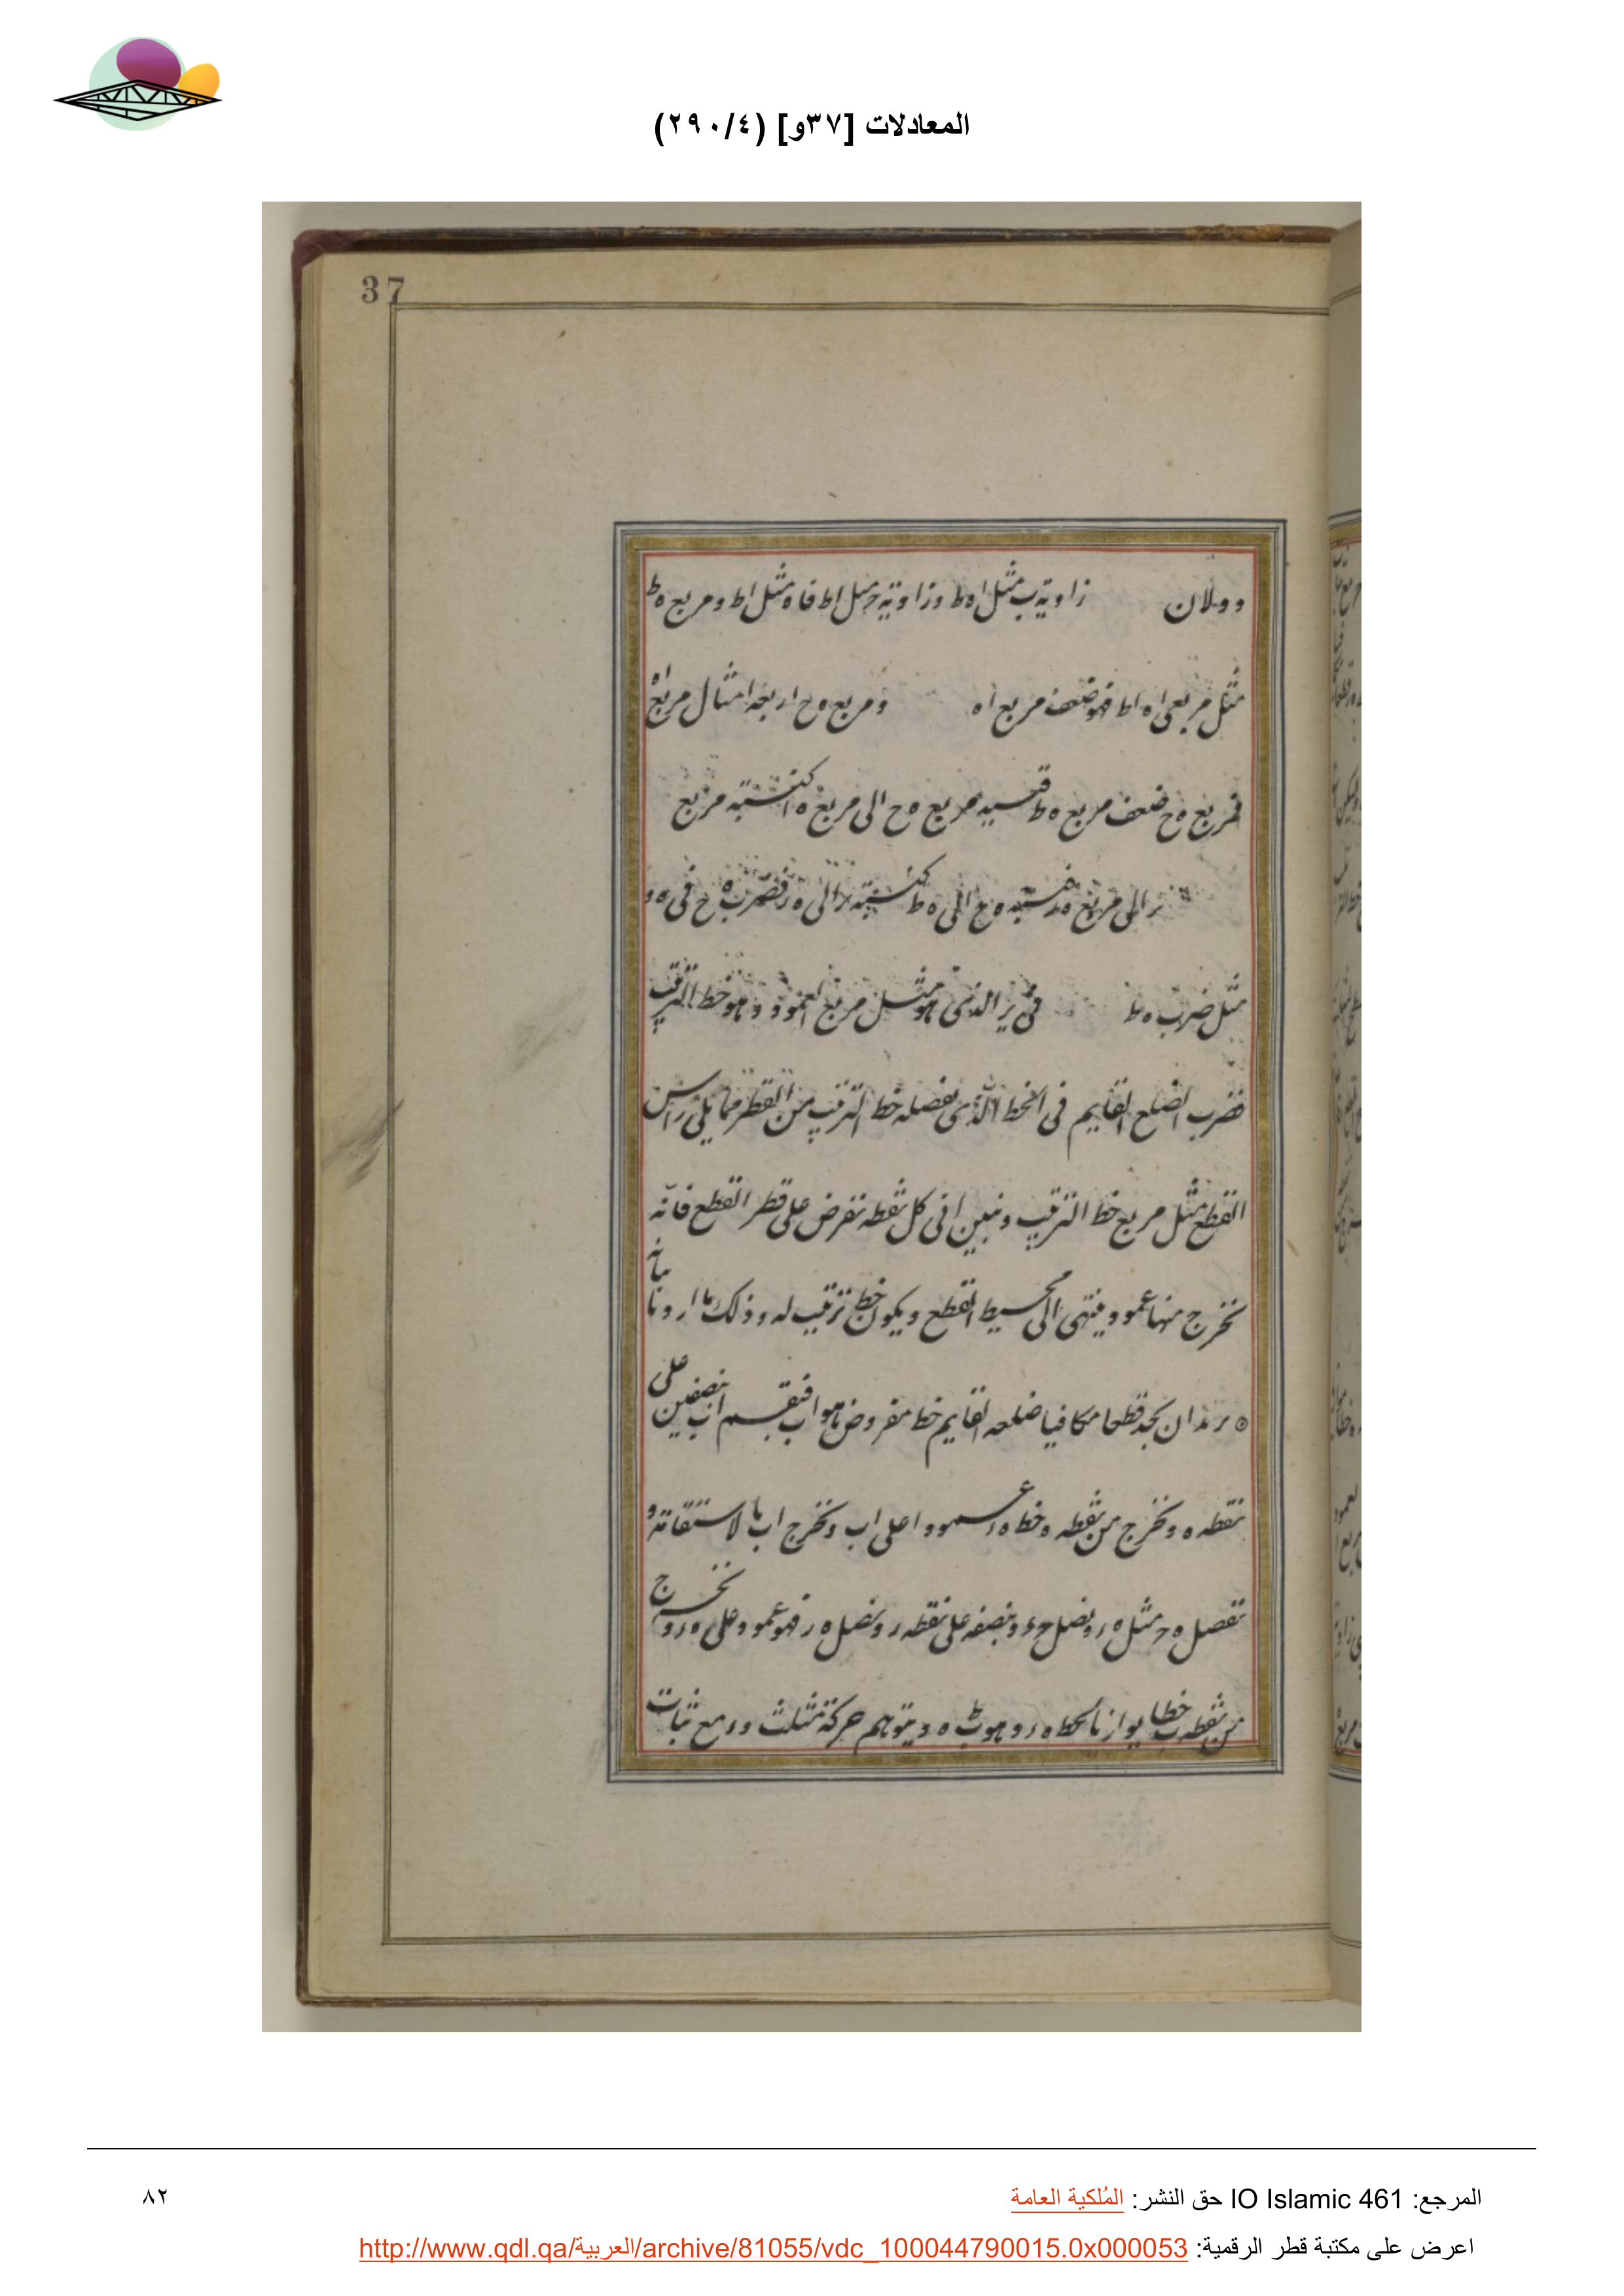 المعادلات [٣٧و] (٢٩٠/٤)
37
وولان زاوية ب مثل اه ط وزاوية ح مثل اط فاه مثل اط ومربع ه ط
مثل مربعى اه اط فهو ضعف مربع اه ومربع ه ح اربعة امثال مربع اه
فمربع ه ح ضعف مربع ه ط فنسبة مربع ه ح الى مربع ه ا كنسبة مربع
ز الى مربع ه ز فنسبة ه ح الى ه ط كنسبة ز الى ه ز فضرب ه ح فى ه و
مثل ضرب ه ط فى ز الذى هو مثل مربع العمود وهو خط الترتيب
فضرب الضلع القايم فى الخط الذى يفصله خط الترتيب من القطر مما يلى راس
القطع مثل مربع خط الترتيب ونبين ان كل نقطه تفرض على قطر القطع فانه
نخرج منها عمود ينتهى الى محيط القطع ويكون خط ترتيب له وذلك ما اردنا بيانه
ه نريد ان نجد قطعا مكافيا ضلعه القايم خط مفروض وهو اب فنقسم اب بنصفين على
نقطه ه ونخرج من نقطه ه خط ه ء عمودا على اب ونخرج اب بالاستقامة و
نفصل ه ح مثل ه ء ونصل ح ء وننصفه على نقطه ر ونصل ه ر فهو عمود على ح ء ونخرج
من نقطه ب خطا يوازيا لخط ه ء وهو ب ه ونتوهم حركة مثلث ه ء مع ثبات
المرجع: IO Islamic 461 حق النشر: المُلكية العامة
٨٢
اعرض على مكتبة قطر الرقمية: http://www.qdl.qa/العربية/archive/81055/vdc_100044790015.0x000053